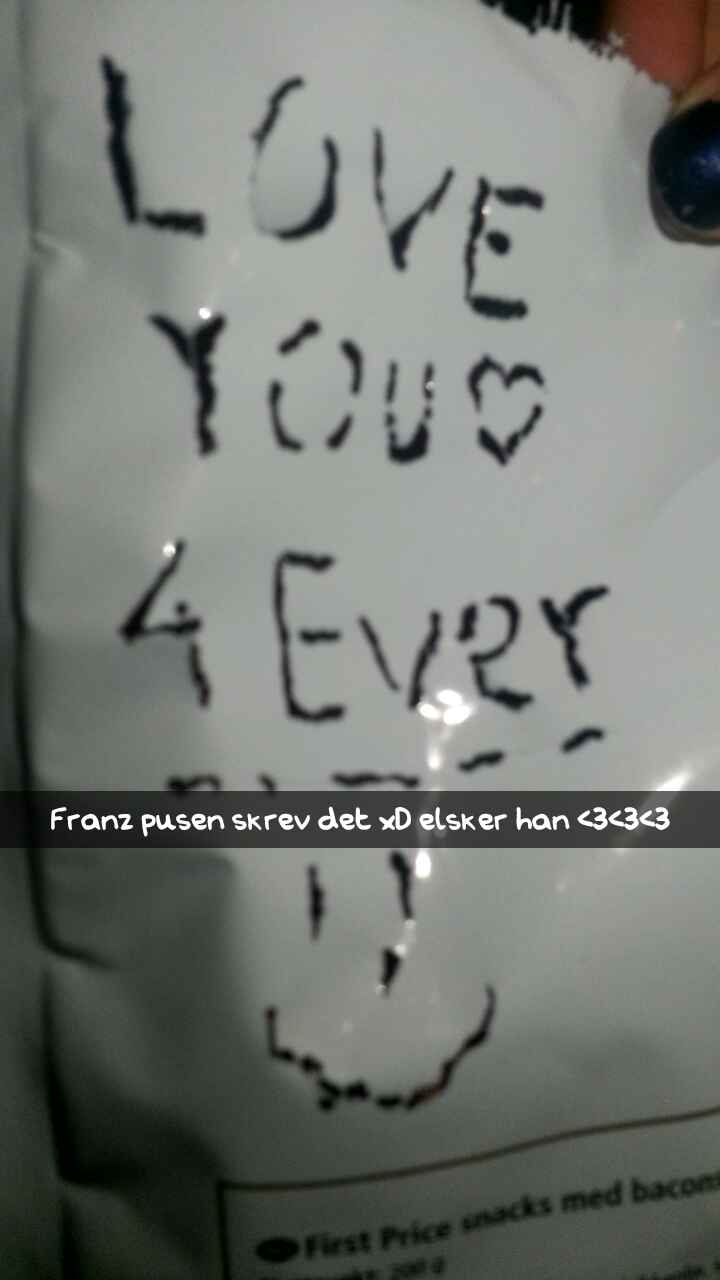 LOVE
YOU♡
4 EVRY
Franz pusen skrev det xD elsker han <3<3<3
First Price snacks med bacons
200 g